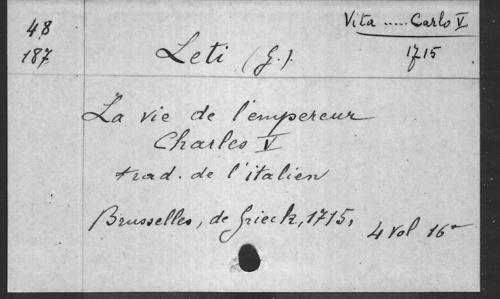 48
187
Vita ..... Carlo V
1715
Leti (G.).
La vie de l'empereur
Charles V
trad. de l'italien
Brusselles, de Grieck, 1715,
4 vol 16°